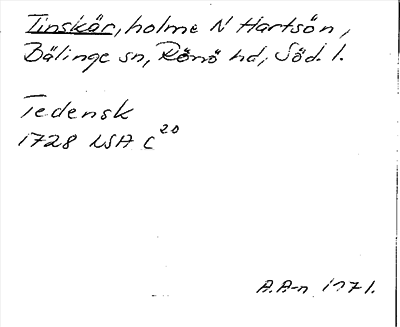 Tinskär, holme N Hartsön,
Bälinge sn, Rönö hd, Söd. l.
Tedensk
1728 LSA C20
A.A-n 1971.